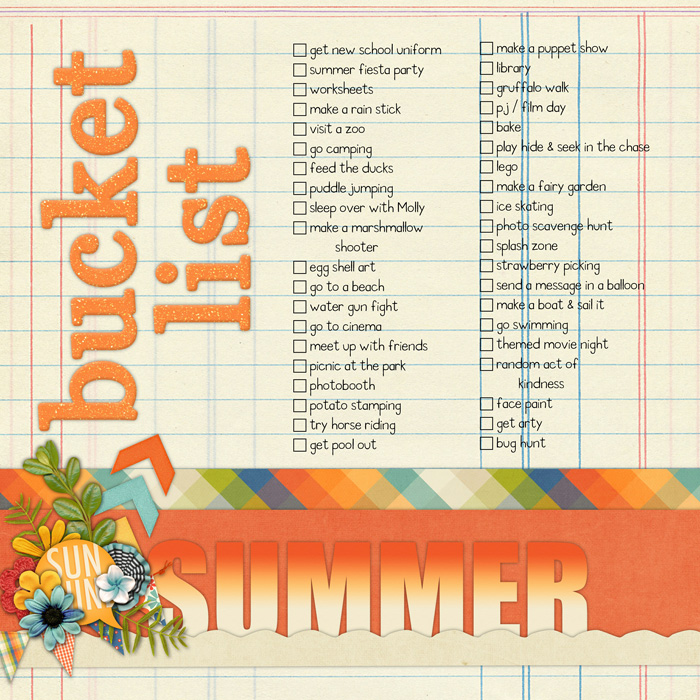 bucket
list
get new school uniform
summer fiesta party
worksheets
make a rain stick
visit a zoo
go camping
feed the ducks
puddle jumping
sleep over with Molly
make a marshmallow
shooter
egg shell art
go to a beach
water gun fight
go to cinema
meet up with friends
picnic at the park
photobooth
potato stamping
try horse riding
get pool out
make a puppet show
library
gruffalo walk
pj / film day
bake
play hide & seek in the chase
lego
make a fairy garden
ice skating
photo scavenge hunt
splash zone
strawberry picking
send a message in a balloon
make a boat & sail it
go swimming
themed movie night
random act of
kindness
face paint
get arty
bug hunt
SUN
SUMMER